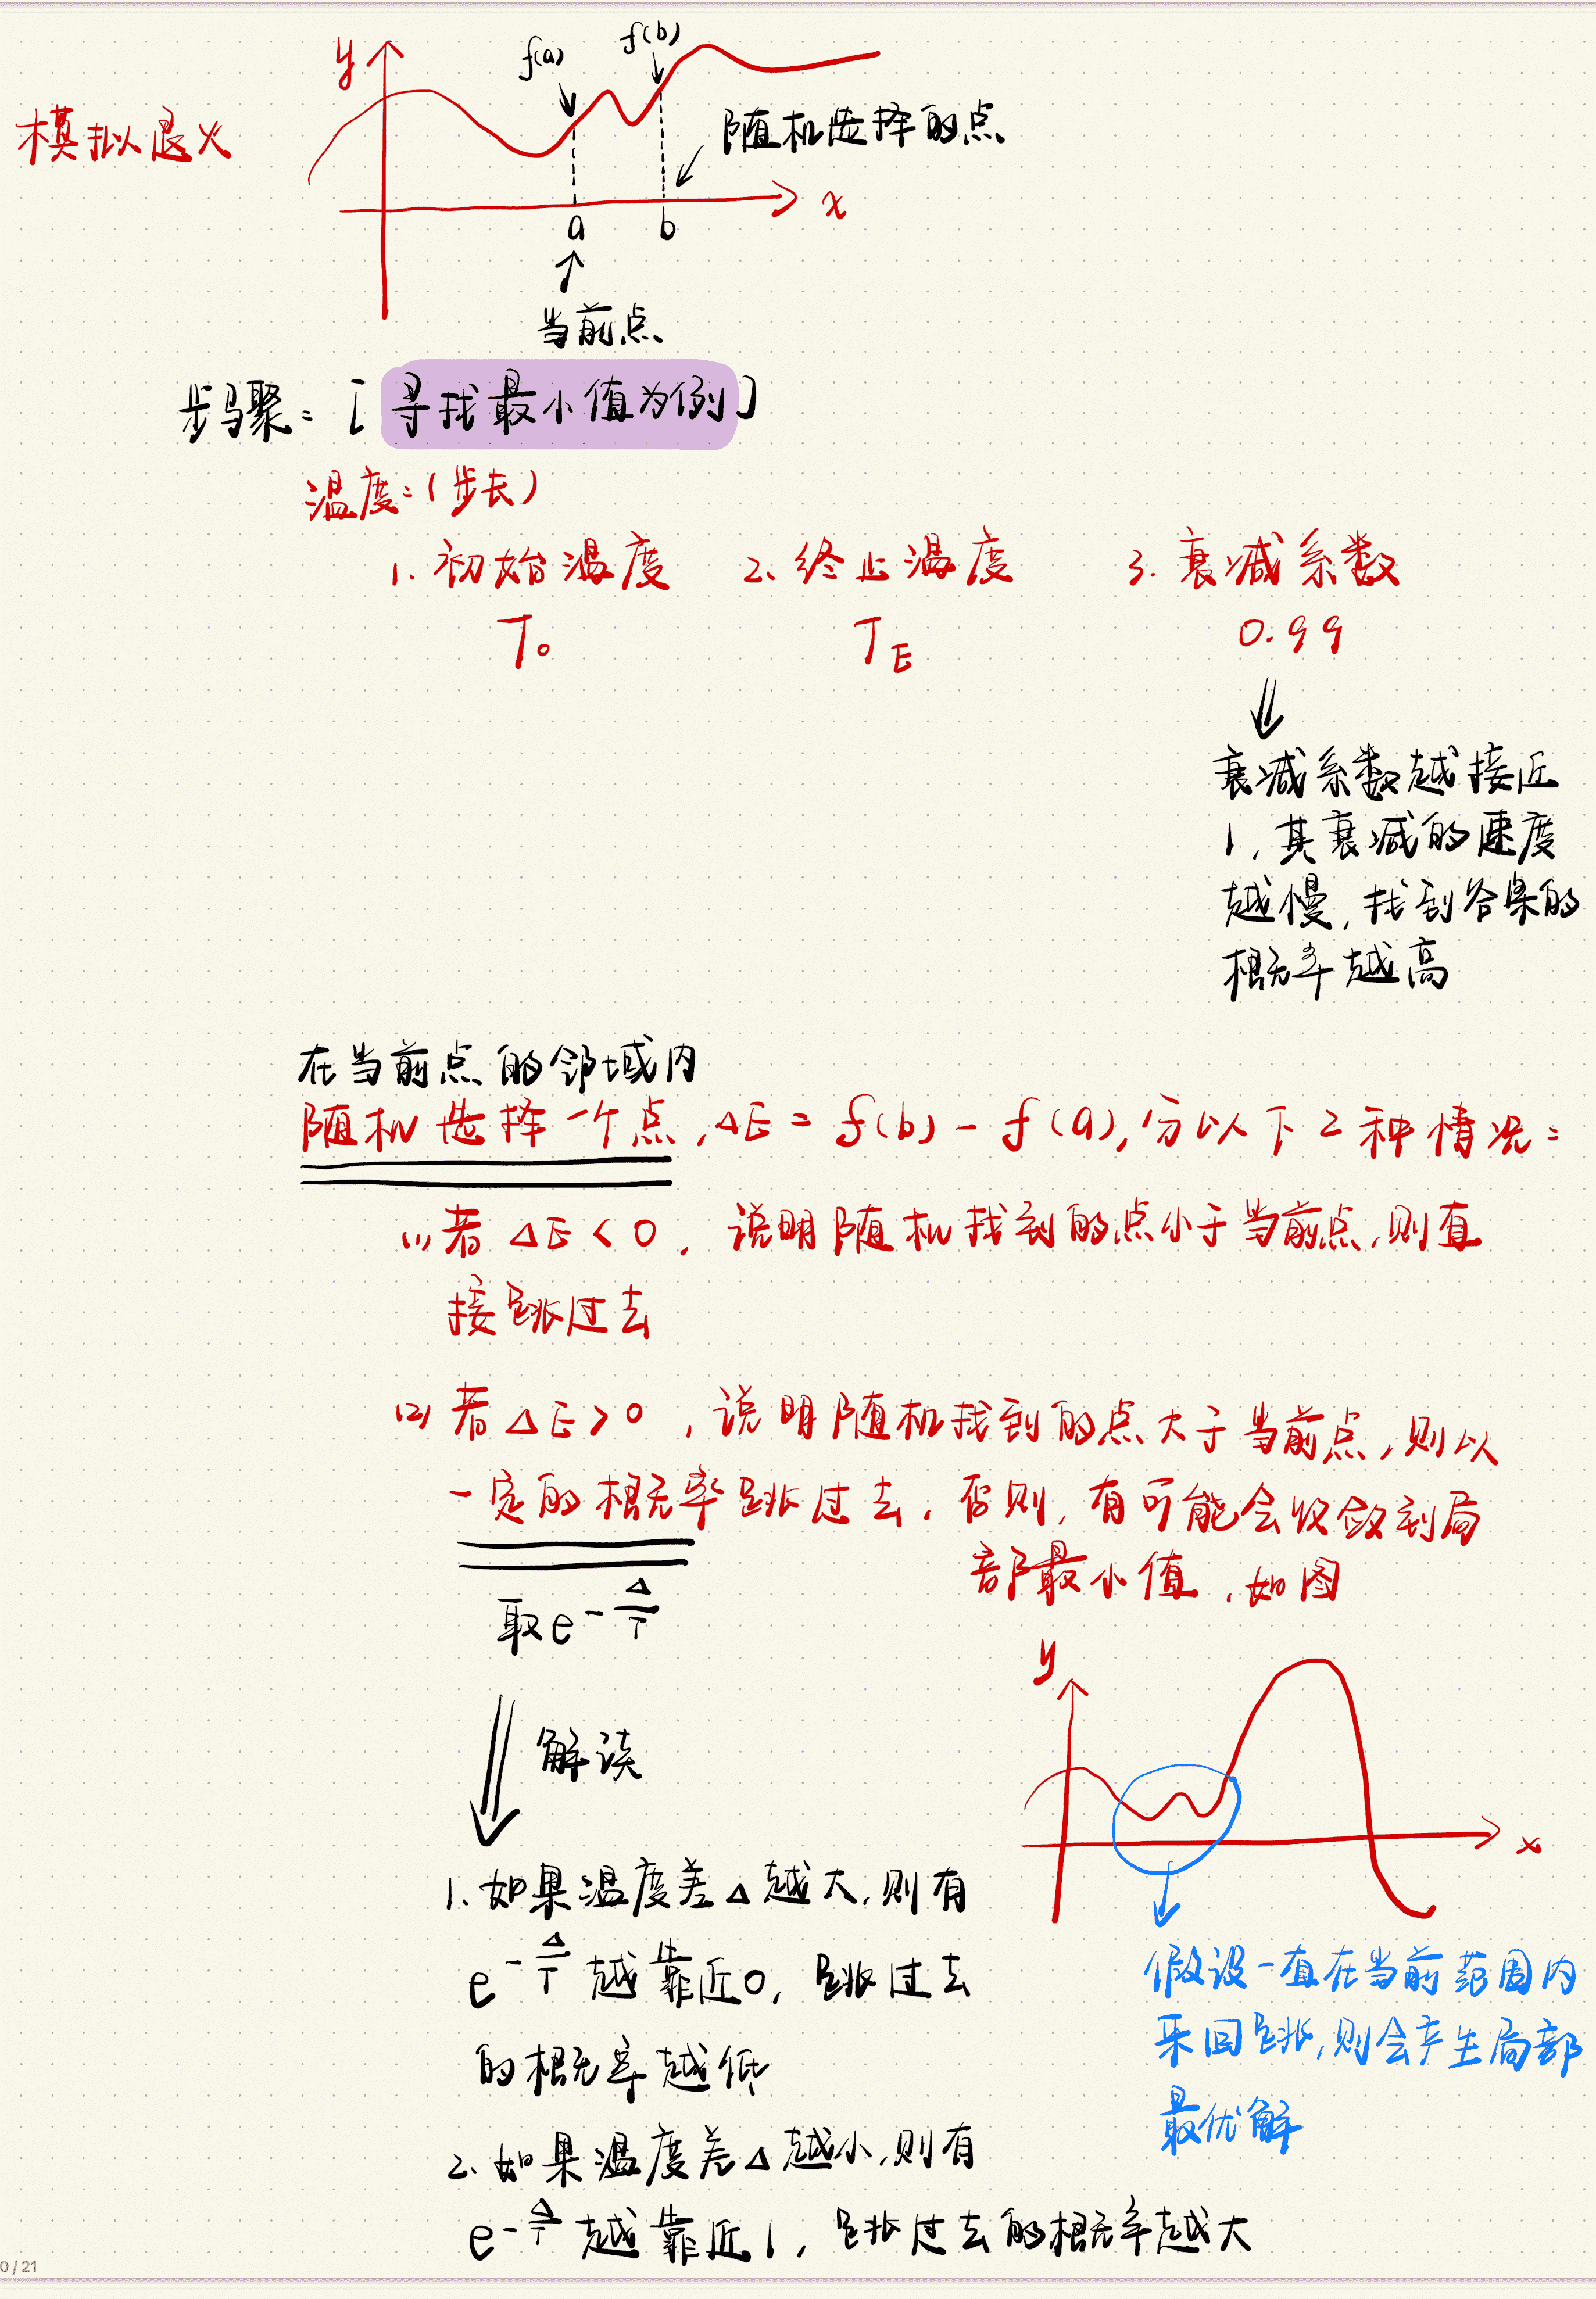 模拟退火
y
f(a)
f(b)
随机选择的点
x
a
b
当前点
步骤:[寻找最小值为例]
温度:(步长)
1. 初始温度 2. 终止温度 3. 衰减系数
T₀ T_E 0.99
衰减系数越接近
1,其衰减的速度
越慢,找到答案的
概率越高
在当前点的邻域内
随机选择一个点,ΔE = f(b) - f(a),分以下2种情况:
(1)若 ΔE < 0,说明随机找到的点小于当前点,则直
接跳过去
(2)若 ΔE > 0,说明随机找到的点大于当前点,则以
一定的概率跳过去,否则,有可能会收敛到局
部最小值,如图
取e^{-Δ/T}
解读
y
x
1. 如果温度差Δ越大,则有
e^{-Δ/T} 越靠近0,跳过去
的概率越低
2. 如果温度差Δ越小,则有
e^{-Δ/T} 越靠近1,跳过去的概率越大
假设一直在当前范围内
来回跳,则会产生局部
最优解
0 / 21